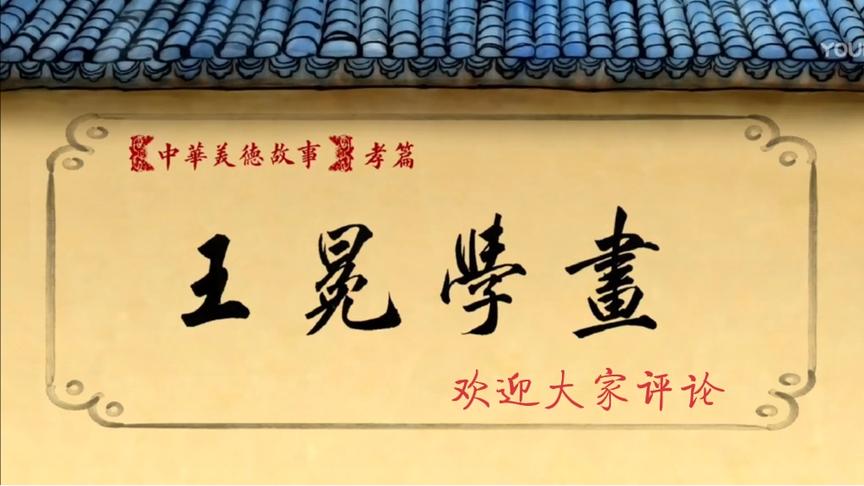 中華美德故事 孝篇
王冕學畫
欢迎大家评论